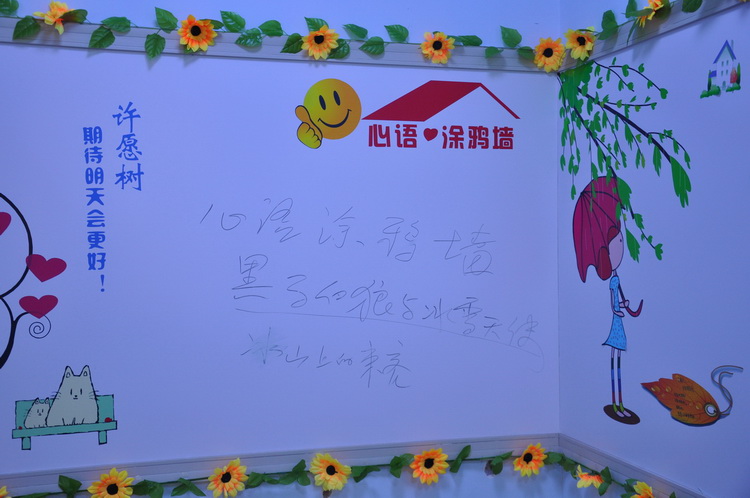 许愿树
期待明天会更好！
心语 涂鸦墙
心语涂鸦墙
黑了的狼与冰雪天使
冰山上的来客